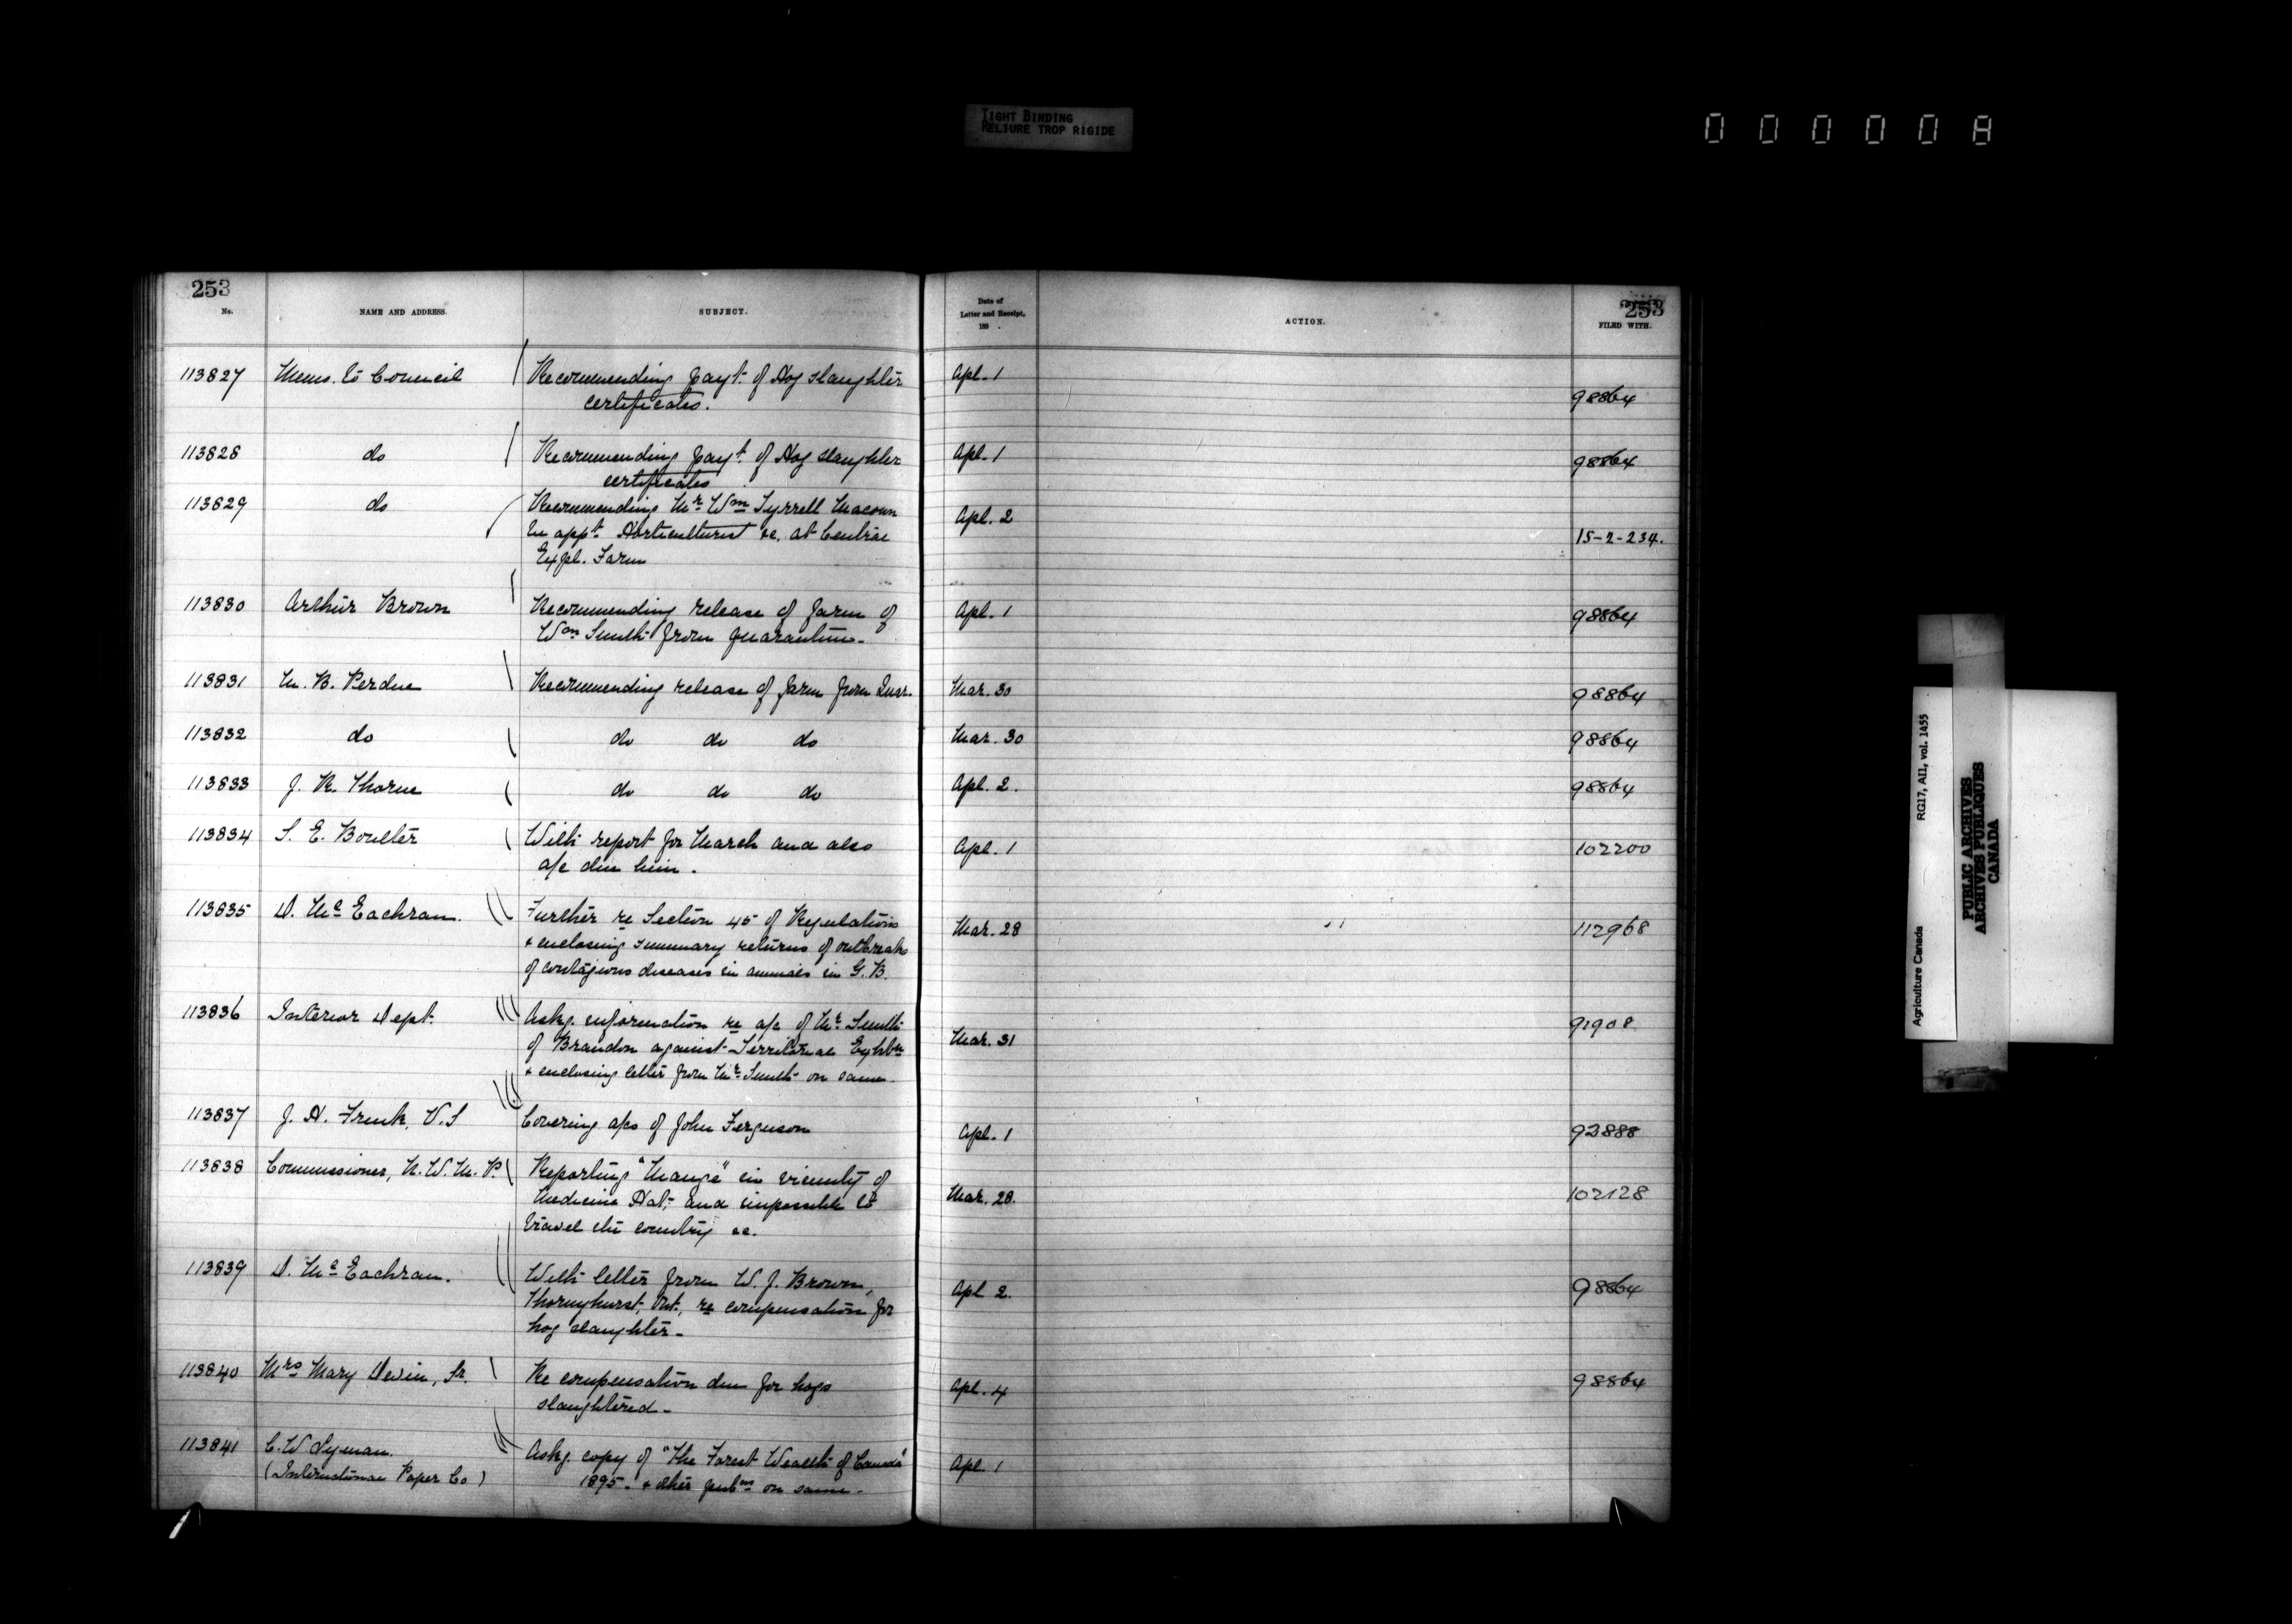 TIGHT BINDING
RELIURE TROP RIGIDE
000008
253
253
No.
NAME AND ADDRESS.
SUBJECT.
Date of
Letter and Receipt,
189 .
ACTION.
FILED WITH.
113827 Memo. to Council Recommending payt. of Hog slaughter Apl. 1
certificates. 98864
113828 do Recommending payt. of Hog slaughter Apl. 1 98864
certificates
113829 do Recommending Mr Wm Tyrrell Macoun Apl. 2
be appt. Horticulturist &c. at Central 15-2-234.
Expl. Farm
113830 Arthur Brown Recommending release of farm of Apl. 1 98864
Wm Smith from quarantine.
113831 M. B. Perdue Recommending release of farm from Quar. Mar. 30 98864
113832 do do do do Mar. 30 98864
113833 J. R. Thorne do do do Apl. 2. 98864
113834 S. E. Boulter With report for March and also Apl. 1 102200
a/c due him.
113835 D. McEachran. Further re Section 45 of Regulations Mar. 28 112968
& enclosing summary returns of outbreaks
of contagious diseases in animals in G. B.
113836 Interior Dept. Askg. information re a/c of Mr. Smith 91908
of Brandon against Territorial Exhbn Mar. 31
& enclosing letter from Mr. Smith on same.
113837 J. H. Frink, V.S Covering a/cs of John Ferguson Apl. 1 92888
113838 Commissioner, N. W. M. P. Reporting "Mange" in vicinity of
Medicine Hat, and impossible to Mar. 28. 102128
travel the country &c.
113839 D. McEachran. With letter from W. J. Brown, Apl 2. 98864
Thornyhurst, Ont., re compensation for
hog slaughter.
113840 Mrs Mary Devin, Sr. Re compensation due for hogs Apl. 4 98864
slaughtered.
113841 C. W Lyman. Askg. copy of "The Forest Wealth of Canada" Apl. 1
(International Paper Co) 1895. & other pubns on same.
Agriculture Canada RG17, AII, vol. 1455
PUBLIC ARCHIVES
ARCHIVES PUBLIQUES
CANADA